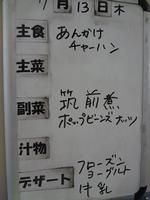 月13日木
主食 あんかけ
チャーハン
主菜
副菜 筑前煮
ポップビーンズナッツ
汁物
デザート フローズン
ヨーグルト
牛乳